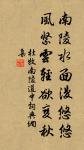 南陵水面漫悠悠
風緊雲輕欲變秋
杜牧南陵道中詩典網
集